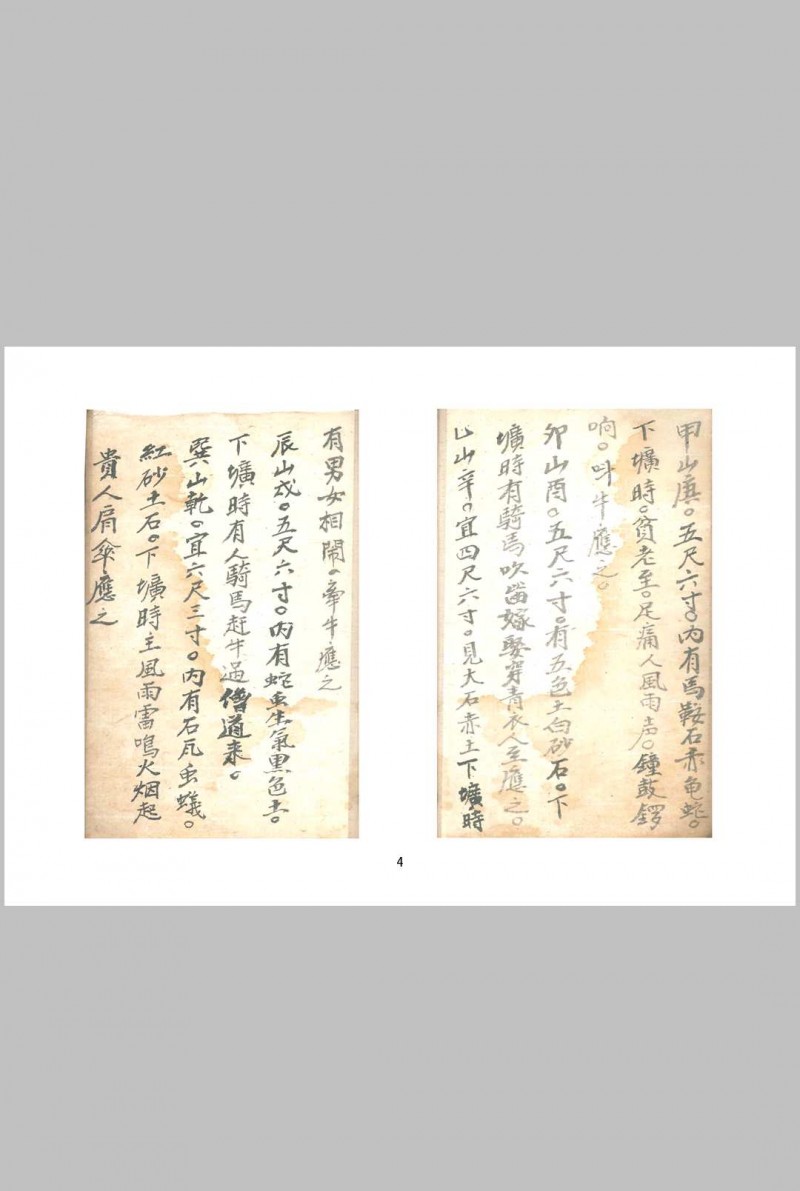 甲山庚。五尺六寸。内有馬鞍石赤龟蛇。
下壙時。貧老至。足痛人風雨声。鐘鼓鑼
响。叫牛應之。
卯山酉。五尺六寸。有五色土白砂石。下
壙時有騎馬吹笛嫁娶穿青衣人至應之。
山辛。宜四尺六寸。見大石赤土下壙時
有男女相鬧。牽牛應之
辰山戌。五尺六寸。内有蛇虫生氣黑色土。
下壙時有人騎馬赶牛過僧道来。
巽山乾。宜六尺三寸。内有石瓦虫蟻。
紅砂土石。下壙時主風雨雷鳴火烟起
貴人肩傘應之
4